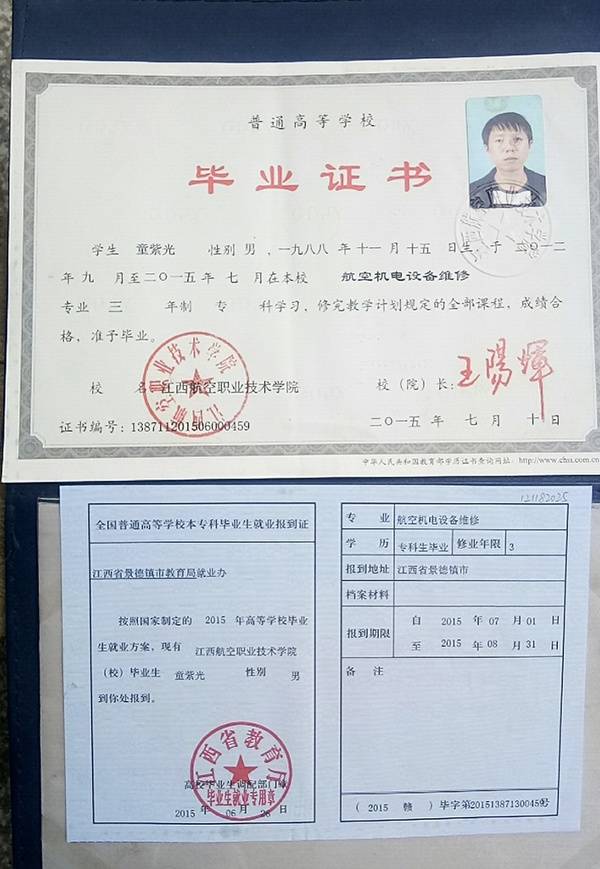 普通高等学校
毕业证书
学生 童紫光 性别 男，一九八八 年 十一 月 十五 日生，于 二〇一二
年 九 月至二〇一五年 七 月在本校 航空机电设备维修
专业 三 年制 专 科学习，修完教学计划规定的全部课程，成绩合
格，准予毕业。
校 名 江西航空职业技术学院 校（院）长：王阳辉
江西航空职业技术学院
证书编号：138711201506000459 二〇一五 年 七 月 十 日
中华人民共和国教育部学历证书查询网址：http://www.chsi.com.cn
121182035
全国普通高等学校本专科毕业生就业报到证
江西省景德镇市教育局就业办
按照国家制定的 2015 年高等学校毕业
生就业方案，现有 江西航空职业技术学院
（校）毕业生 童紫光 性别 男
到你处报到。
江西省教育厅
毕业生就业专用章
高校毕业生调配部门章
2015 年 06 月 26 日
专 业 航空机电设备维修
学 历 专科生毕业 修业年限 3
报到地址 江西省景德镇市
档案材料
报到期限 自 2015 年 07 月 01 日
至 2015 年 08 月 31 日
备 注
（ 2015 赣 ）毕字第201513871300459号